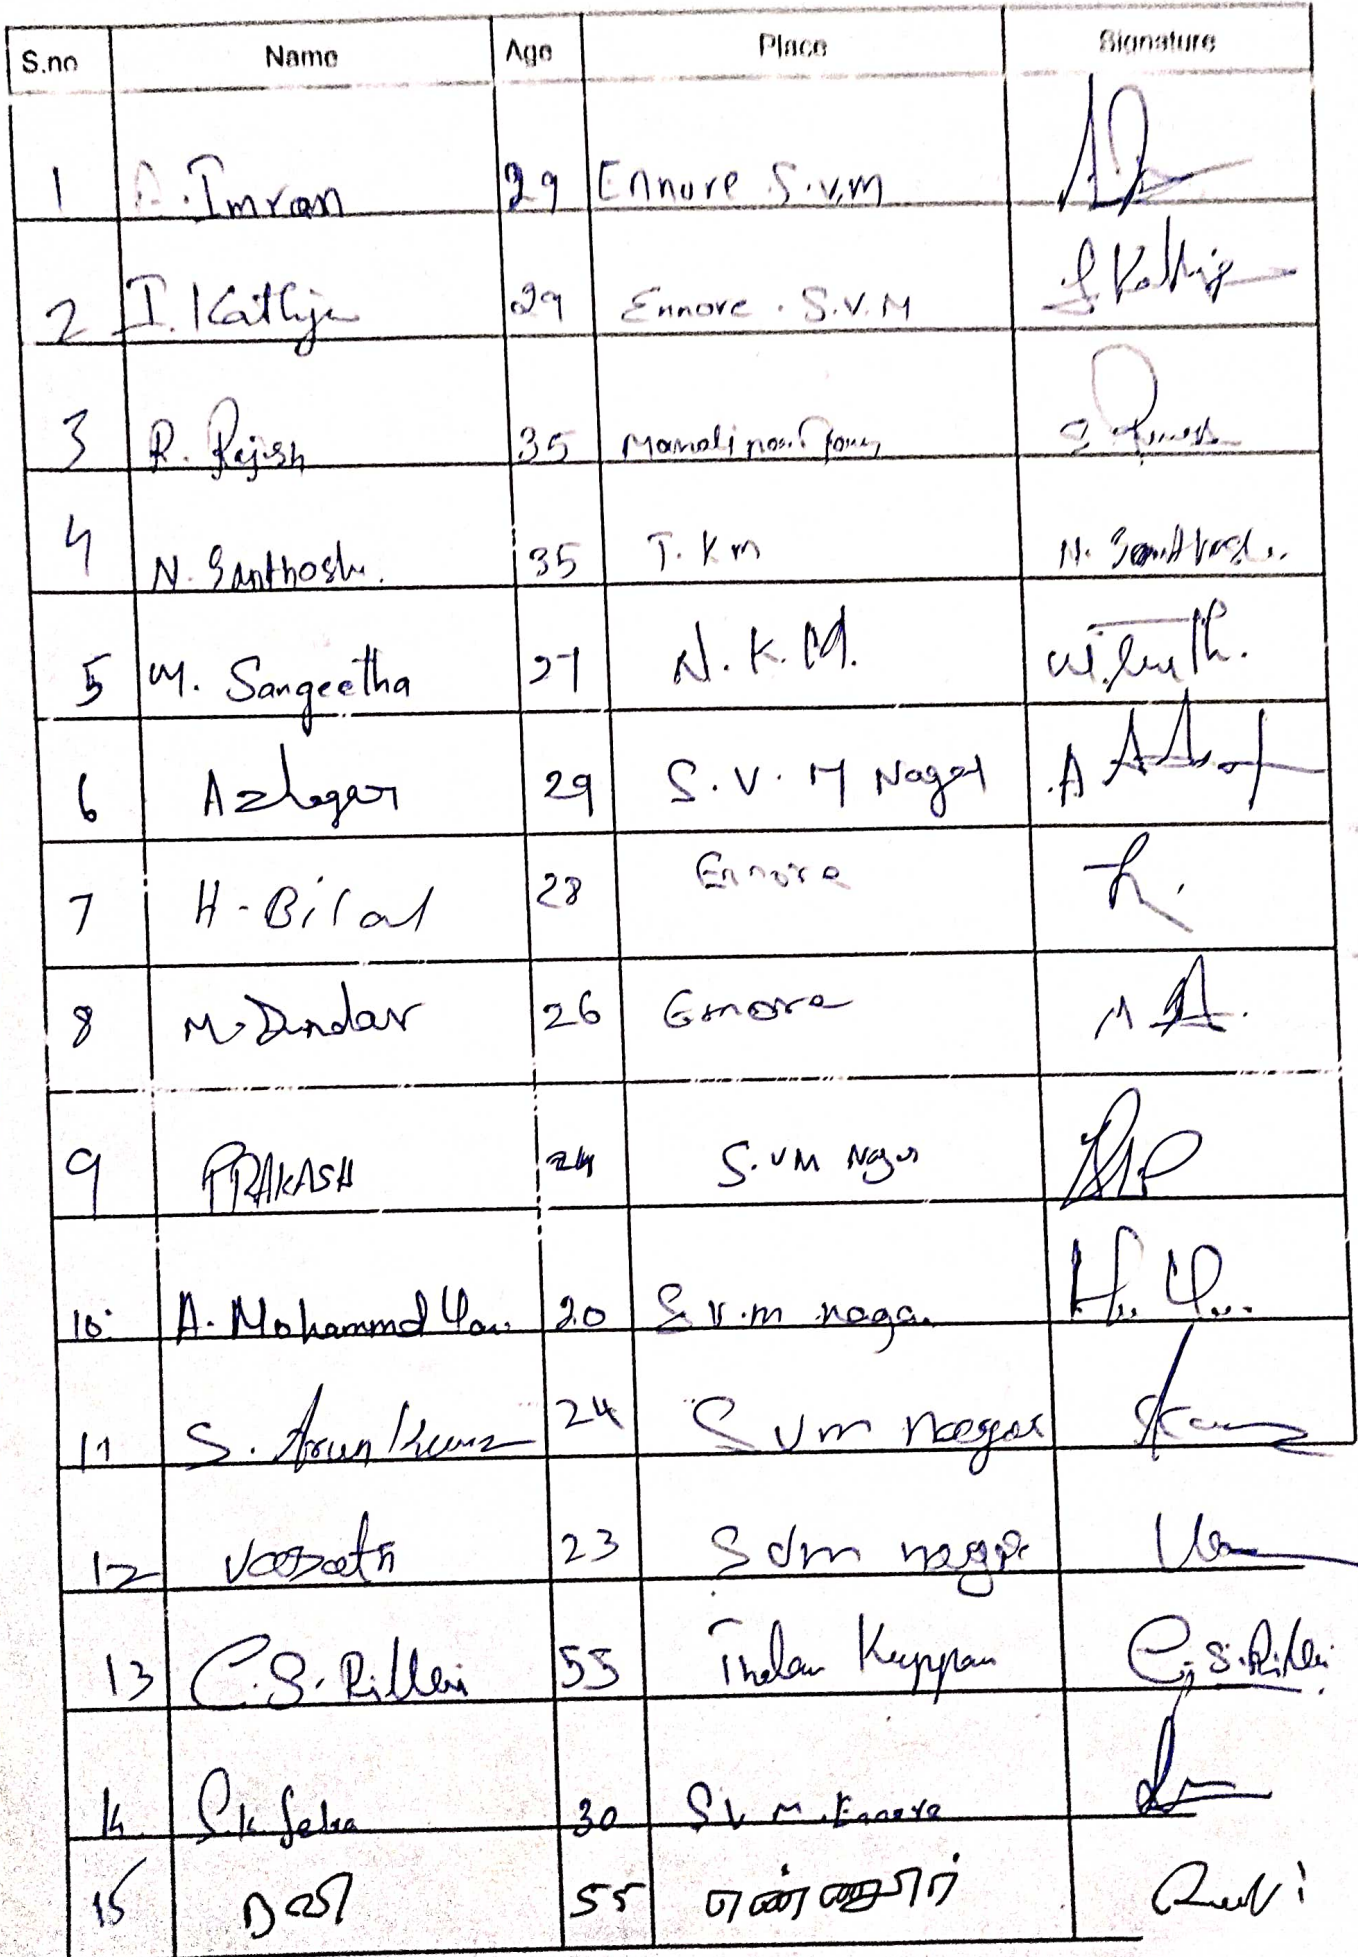 S.no Name Age Place Signature
1 A. Imran 29 Ennore S.V.M
2 I. Kathija 29 Ennore . S.V.M I. Kathija
3 R. Rajesh 35 Manali
4 N. Santhosh. 35 T. K m N. Santhosh
5 M. Sangeetha 27 N. K. M.
6 Azhagar 29 S. V. M Nagar
7 H - Bilal 28 Ennore
8 M. 26 Ennore
9 PRAKASH 24 S. VM Nagar
10 A. Mohammed 20 S. V. m nagar
11 S. Arun Kumar 24 S Vm nagar
12 23 nagar
13 C. S. Pillai 55 Kuppam C. S. Pillai
14 S.K 30 S V M. Ennore
15 ரவி 55 எண்ணூர் Ravi